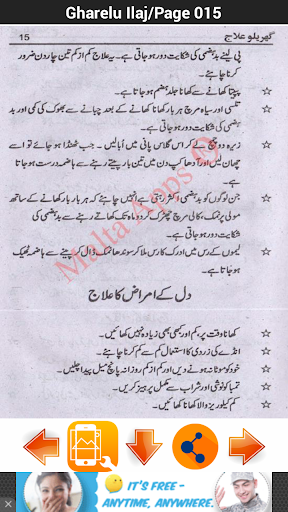 Gharelu Ilaj/Page 015
گھریلو علاج
15
پی لینے بدہضمی کی شکایت دور ہو جاتی ہے۔ یہ علاج کم از کم تین چار دن ضرور
کرنا چاہئے۔
☆ پپیتا کھانے سے کھانا جلد ہضم ہو جاتا ہے۔
☆ تلسی اور سیاہ مرچ ہر بار کھانا کھانے کے بعد چبانے سے بھوک کی کمی اور بد
ہضمی کی شکایت دور ہو جاتی ہے۔
☆ زیرہ دو چمچ لے کر اس گلاس پانی میں اُبالیں۔ جب ٹھنڈا ہو جائے تو اسے
چھان لیں اور آدھا کپ دن میں تین بار پیتے رہنے سے ہاضمہ درست ہو جاتا
ہے۔
☆ جن لوگوں کو بدہضمی اکثر رہتی ہے انہیں چاہئے کہ ہر بار کھانے کے ساتھ
مولی پر نمک، کالی مرچ چھڑک کر دو ماہ تک کھاتے رہنے سے بدہضمی کی
شکایت دور ہو جاتی ہے۔
☆ لیموں کے رس میں ادرک کا رس ملا کر سوندھا نمک ڈال کر پینے سے ہاضمہ ٹھیک
ہو جاتا ہے۔
دل کے امراض کا علاج
☆ کھانا وقت پر، کم اور کبھی بھی زیادہ نہیں کھائیں۔
☆ انڈے کی زردی کا استعمال کم سے کم کرنا چاہئے۔
☆ خود کو موٹا نہ ہونے دیں اور کم از کم روزانہ پانچ میل پیدا چلیں۔
☆ تمباکو نوشی اور شراب سے مکمل پرہیز کریں۔
☆ کم کیلوریز والا کھانا کھائیں۔
Malta Apps ©
IT'S FREE -
ANYTIME, ANYWHERE.